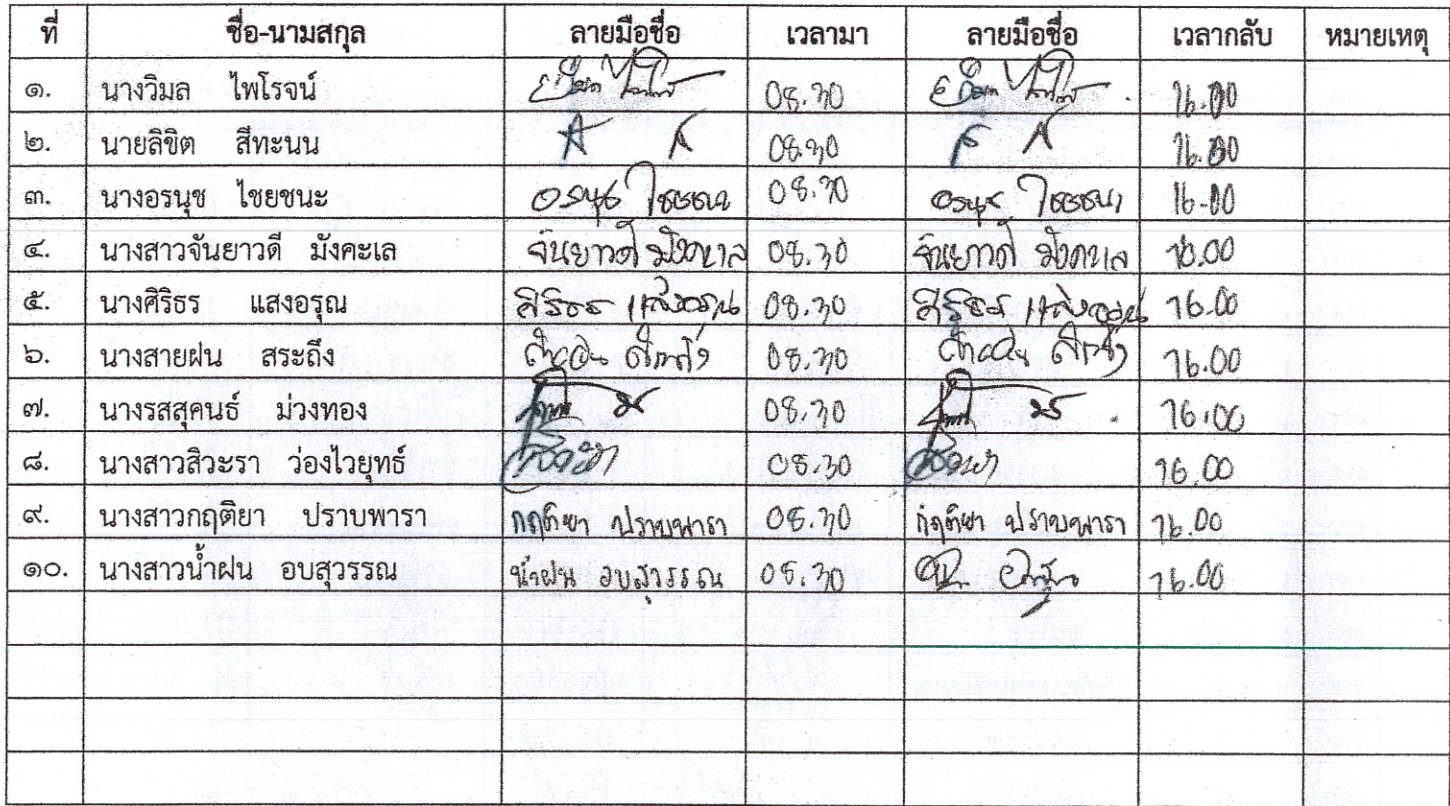 ที่ ชื่อ-นามสกุล ลายมือชื่อ เวลามา ลายมือชื่อ เวลากลับ หมายเหตุ
๑. นางวิมล ไพโรจน์ 08.30 16.00
๒. นายลิขิต สีทะนน 08.30 16.00
๓. นางอรนุช ไชยชนะ อรนุช ไชยชนะ 08.30 อรนุช ไชยชนะ 16.00
๔. นางสาวจันยาวดี มังคะเล จันยาวดี 08.30 จันยาวดี 16.00
๕. นางศิริธร แสงอรุณ ศิริธร แสงอรุณ 08.30 ศิริธร แสงอรุณ 16.00
๖. นางสายฝน สระถึง 08.30 16.00
๗. นางรสสุคนธ์ ม่วงทอง 08.30 16.00
๘. นางสาวสิวะรา ว่องไวยุทธ์ 08.30 16.00
๙. นางสาวกฤติยา ปราบพารา กฤติยา ปราบพารา 08.30 กฤติยา ปราบพารา 16.00
๑๐. นางสาวน้ำฝน อบสุวรรณ น้ำฝน อบสุวรรณ 08.30 16.00